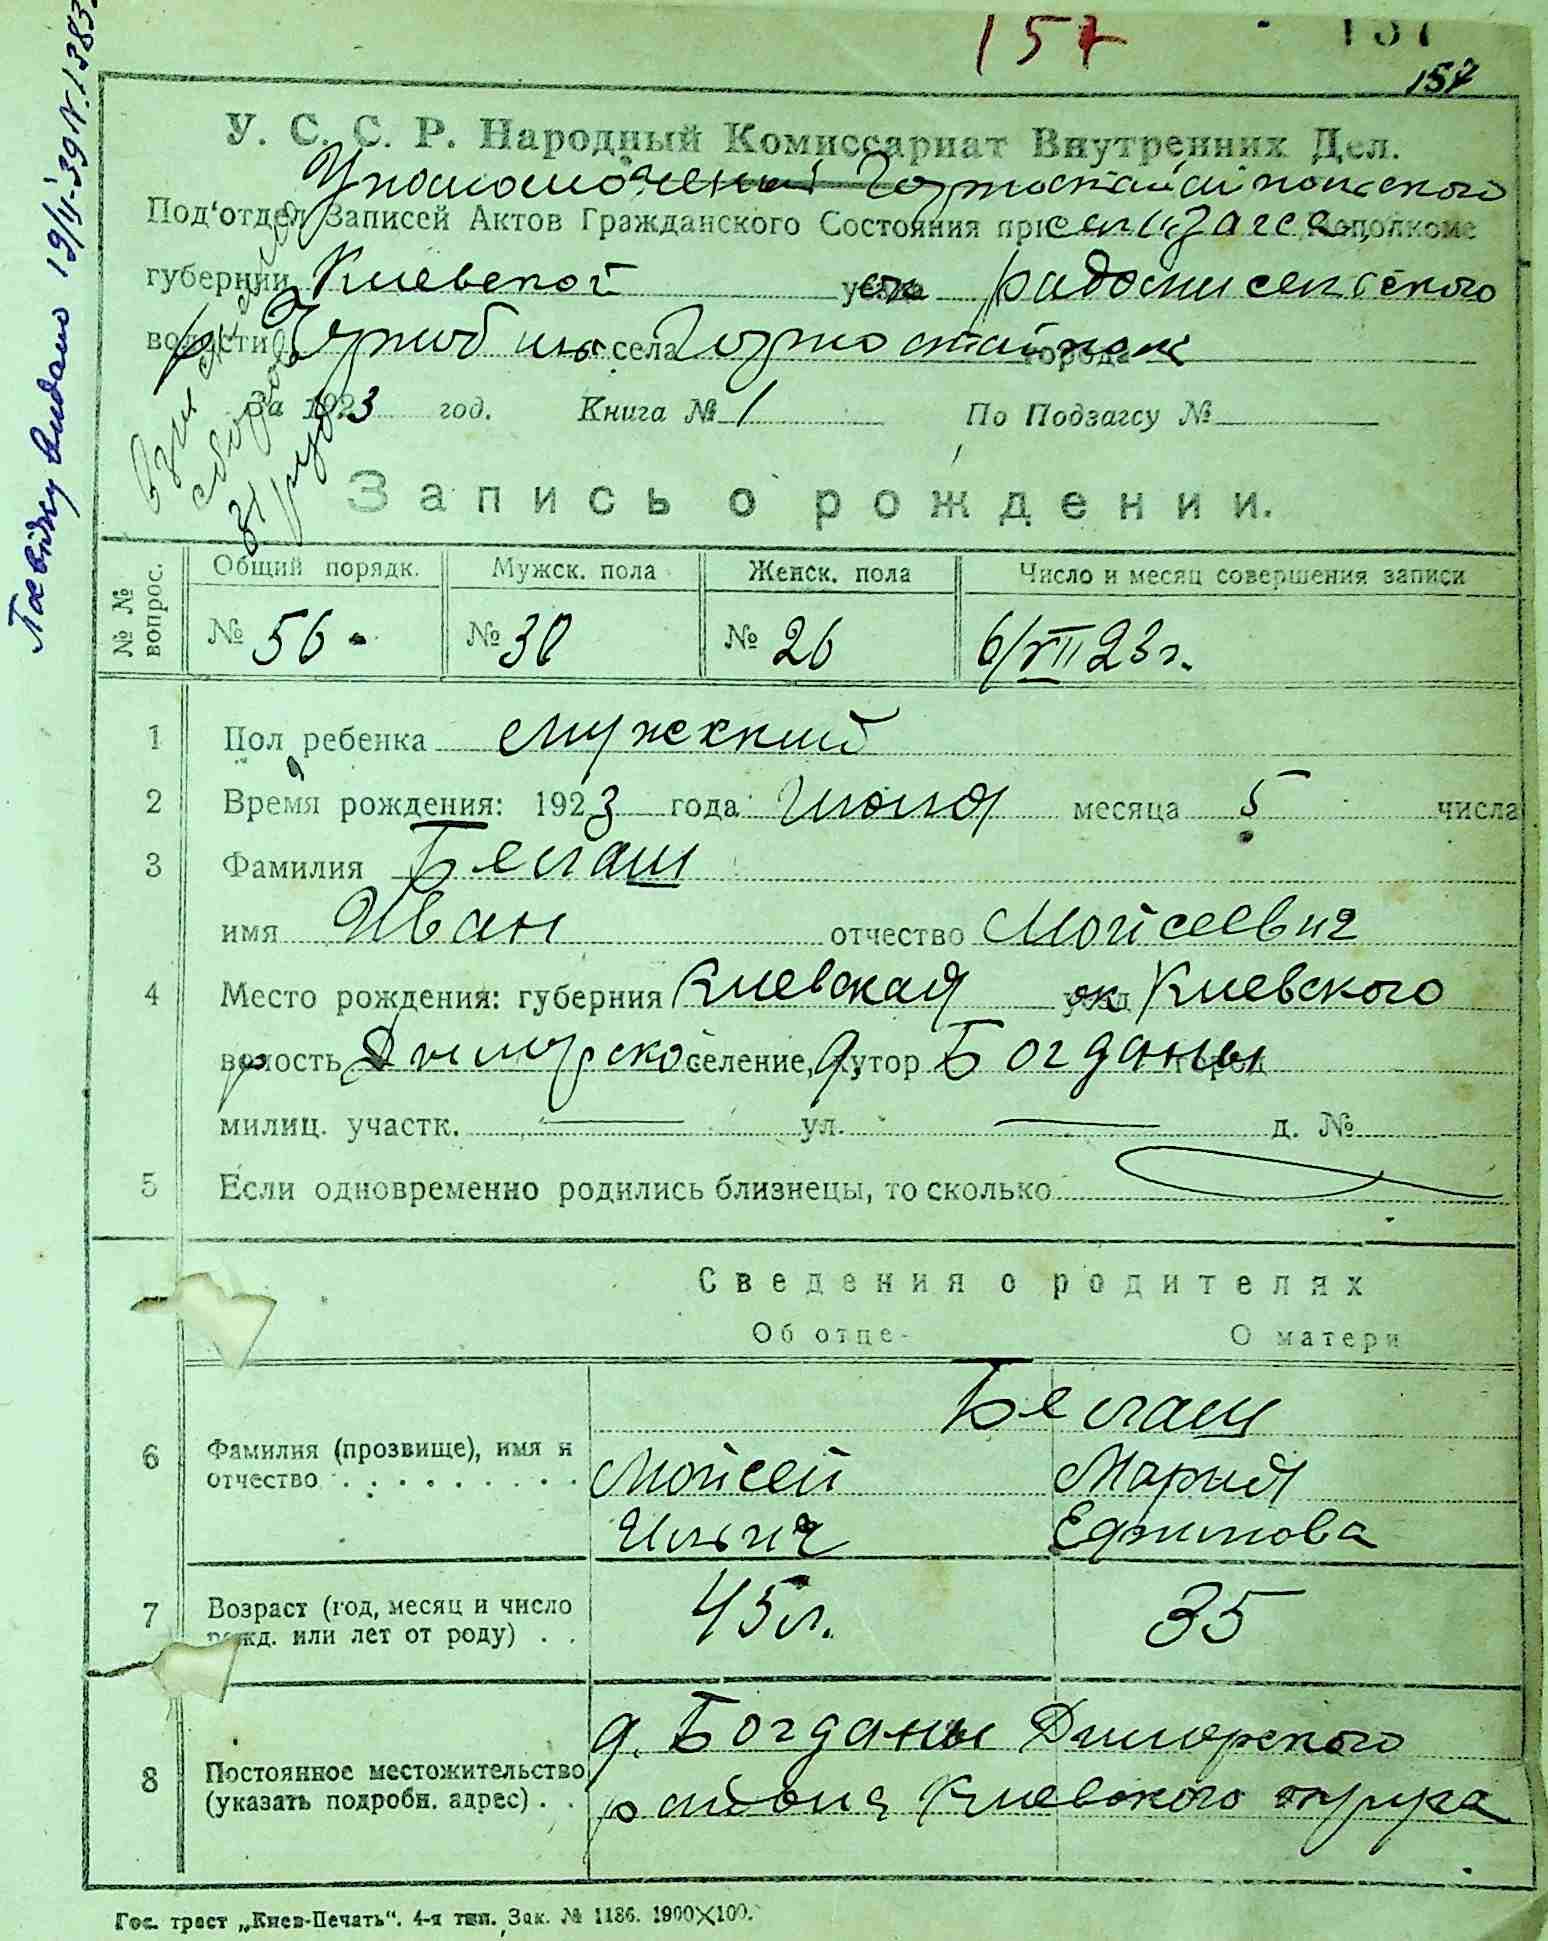 157
157
157
Посвідку видано 19/II-39 N. 1383
У. С. С. Р. Народный Комиссариат Внутренних Дел.
Уполномоченный Горностайпольского
Под'отдел Записей Актов Гражданского Состояния при сельзагсе Исполкоме
губернии Киевской уезда ок Радомисельского
волости р Чернобиль села Горностайполь города
За 1923 год. Книга № 1 По Подзагсу №
сбора
31 руб
Запись о рождении.
№ № вопрос. Общий порядк. Мужск. пола Женск. пола Число и месяц совершения записи
№ 56 № 30 № 26 6/VII 23 г.
1 Пол ребенка мужеский
2 Время рождения: 1923 года Июля месяца 5 числа
3 Фамилия Белаш
имя Иван отчество Мойсеевич
4 Место рождения: губерния Киевская уезд ок Киевского
волость р Дымурско селение, хутор д. Богданы город
милиц. участк. — ул. — д. №
5 Если одновременно родились близнецы, то сколько
Сведения о родителях
Об отце О матери
Белаш
6 Фамилия (прозвище), имя и
отчество Мойсей Мария
Ильич Ефимова
7 Возраст (год, месяц и число
рожд. или лет от роду) 45 л. 35
8 Постоянное местожительство
(указать подробн. адрес) д. Богданы Димерского
района Киевского округа
Гос. трест „Киев-Печать“. 4-я тип. Зак. № 1186. 1900×100.